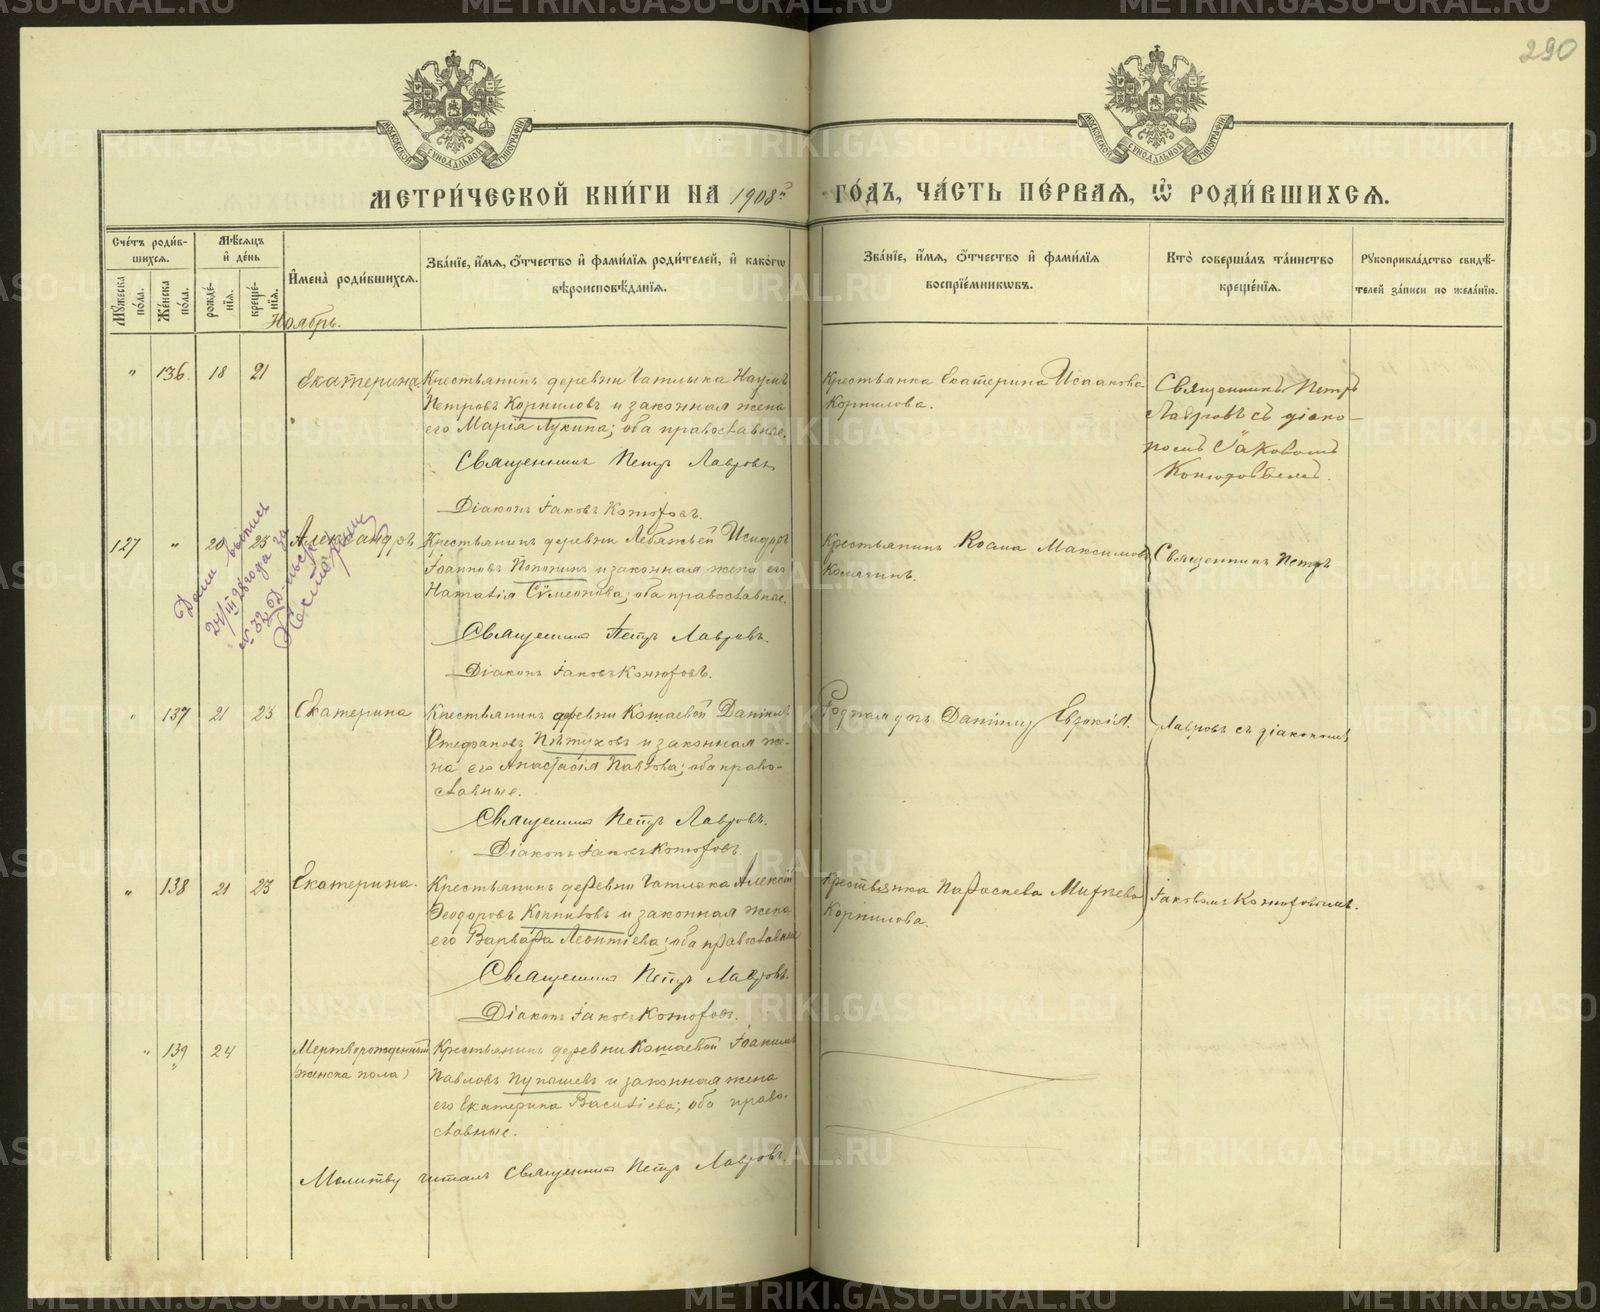 290
МОСКОВСКОЙ СѴНОДАЛЬНОЙ ТИПОГРАФІИ
МОСКОВСКОЙ СѴНОДАЛЬНОЙ ТИПОГРАФІИ
МЕТРИ́ЧЕСКОЙ КНИ́ГИ НА 1908й ГО́ДЪ, ЧА́СТЬ ПЕ́РВАЯ, Ѡ РОДИ́ВШИХСѦ.
Сче́тъ роди́в-
шихсѧ.
Мꙋ́жеска по́ла.
Же́нска по́ла.
Мѣ́сѧцъ
и҆ де́нь
рожде́-
нїѧ.
креще́-
нїѧ.
И҆мена̀ роди́вшихсѧ.
Зва́нїе, и҆́мѧ, ѻ҆́тчество и҆ фами́лїѧ роди́телей, и҆ како́гѡ
вѣроисповѣ́данїѧ.
Зва́нїе, и҆́мѧ, ѻ҆́тчество и҆ фами́лїѧ
воспрїе́мникѡвъ.
Кто̀ соверша́лъ та́инство
креще́нїѧ.
Рꙋкоприкла́дство свидѣ́-
телей за́писи по жела́нїю.
Ноябрь.
" 136. 18 21 Екатерина. Крестьянинъ деревни Гатлыка Наумъ
Петровъ Корниловъ и законная жена
его Марія Лукина; оба православные.
Священникъ Петръ Лавровъ
Діаконъ Іаковъ
Крестьянка Екатерина Исаакова
Корнилова.
Священникъ Петръ
Лавровъ съ діако-
номъ Іаковомъ
127 " 20 23 Александръ Крестьянинъ деревни Лебяжьей Исидоръ
Іоанновъ Попонинъ и законная жена его
Наталія Сѵмеонова; оба православные.
Священникъ Петръ Лавровъ.
Діаконъ Іаковъ
Дана выпись
24/III 28 года за
№ 32
Крестьянинъ Максимовъ
Священникъ Петръ
" 137 21 23 Екатерина Крестьянинъ деревни Кошаевой Даніилъ
Стефановъ Пѣтуховъ и законная же-
на его Анастасія Павлова; оба право-
славные.
Священникъ Петръ Лавровъ.
Діаконъ Іаковъ
Родная дочь Даніилу Евдокія.
Лавровъ съ діакономъ
" 138 21 23 Екатерина. Крестьянинъ деревни Гатлака Алексій
Ѳеодоровъ Корниловъ и законная жена
его Варвара Леонтіева; оба православные
Священникъ Петръ Лавровъ.
Діаконъ Іаковъ
Крестьянка Параскева
Корнилова.
Іаковомъ
" 139 24 Мертворожденный
(женска пола) Крестьянинъ деревни Кошаевой Іоакимъ
Павловъ Пупышевъ и законная жена
его Екатерина Василіева; оба право-
славные.
Молитву читалъ Священникъ Петръ Лавровъ.
METRIKI.GASO-URAL.RU